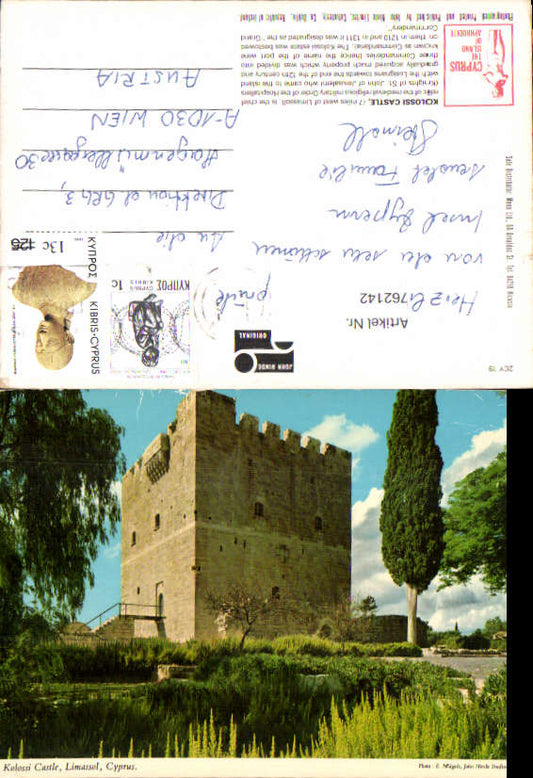 KOLOSSI CASTLE. (7 miles) west of Limassol, is the chief
relic of the medieval religious military Order of the Hospitallers
(Knights of St. John of Jerusalem) who came to the island
with the Lusignans towards the end of the 12th century and
gradually acquired much property which was divided into
three Commanderies (hence the name of the port wine
known as Commandaria). The Kolossi estate was bestowed
on them in 1210 and in 1311 was designated as the "Grand
Commandery".
CYPRUS
THE
ISLAND
OF
APHRODITE
Photographed Printed and Published by John Hinde Ltd., Cabinteely, Co. Dublin, Republic of Ireland.
Sole Distributor
2CY 19
JOHN HINDE
ORIGINAL
Artikel Nr.
762142
Herzl.
von der sehr schönen
Insel Zypern
sendet Familie
ΚΥΠΡΟΣ KIBRIS-CYPRUS
13c 125
ΚΥΠΡΟΣ
CYPRUS
KIBRIS
1c
An die
Direktion d. GRG 3,
Hagenmüllergasse 30
A-1030 WIEN
AUSTRIA
Kolossi Castle, Limassol, Cyprus.
Photo : E. Nägele, John Hinde Studios